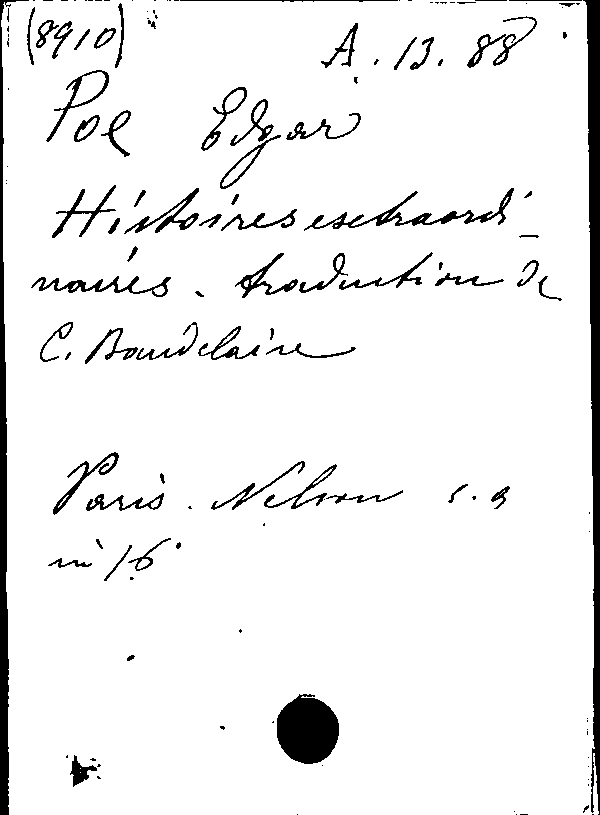 (8910)
A. 13. 88
Poe Edgar
Histoires esctraordi-
naires. traduction de
C. Baudelaire
Paris. Nelson s.a
in 16°